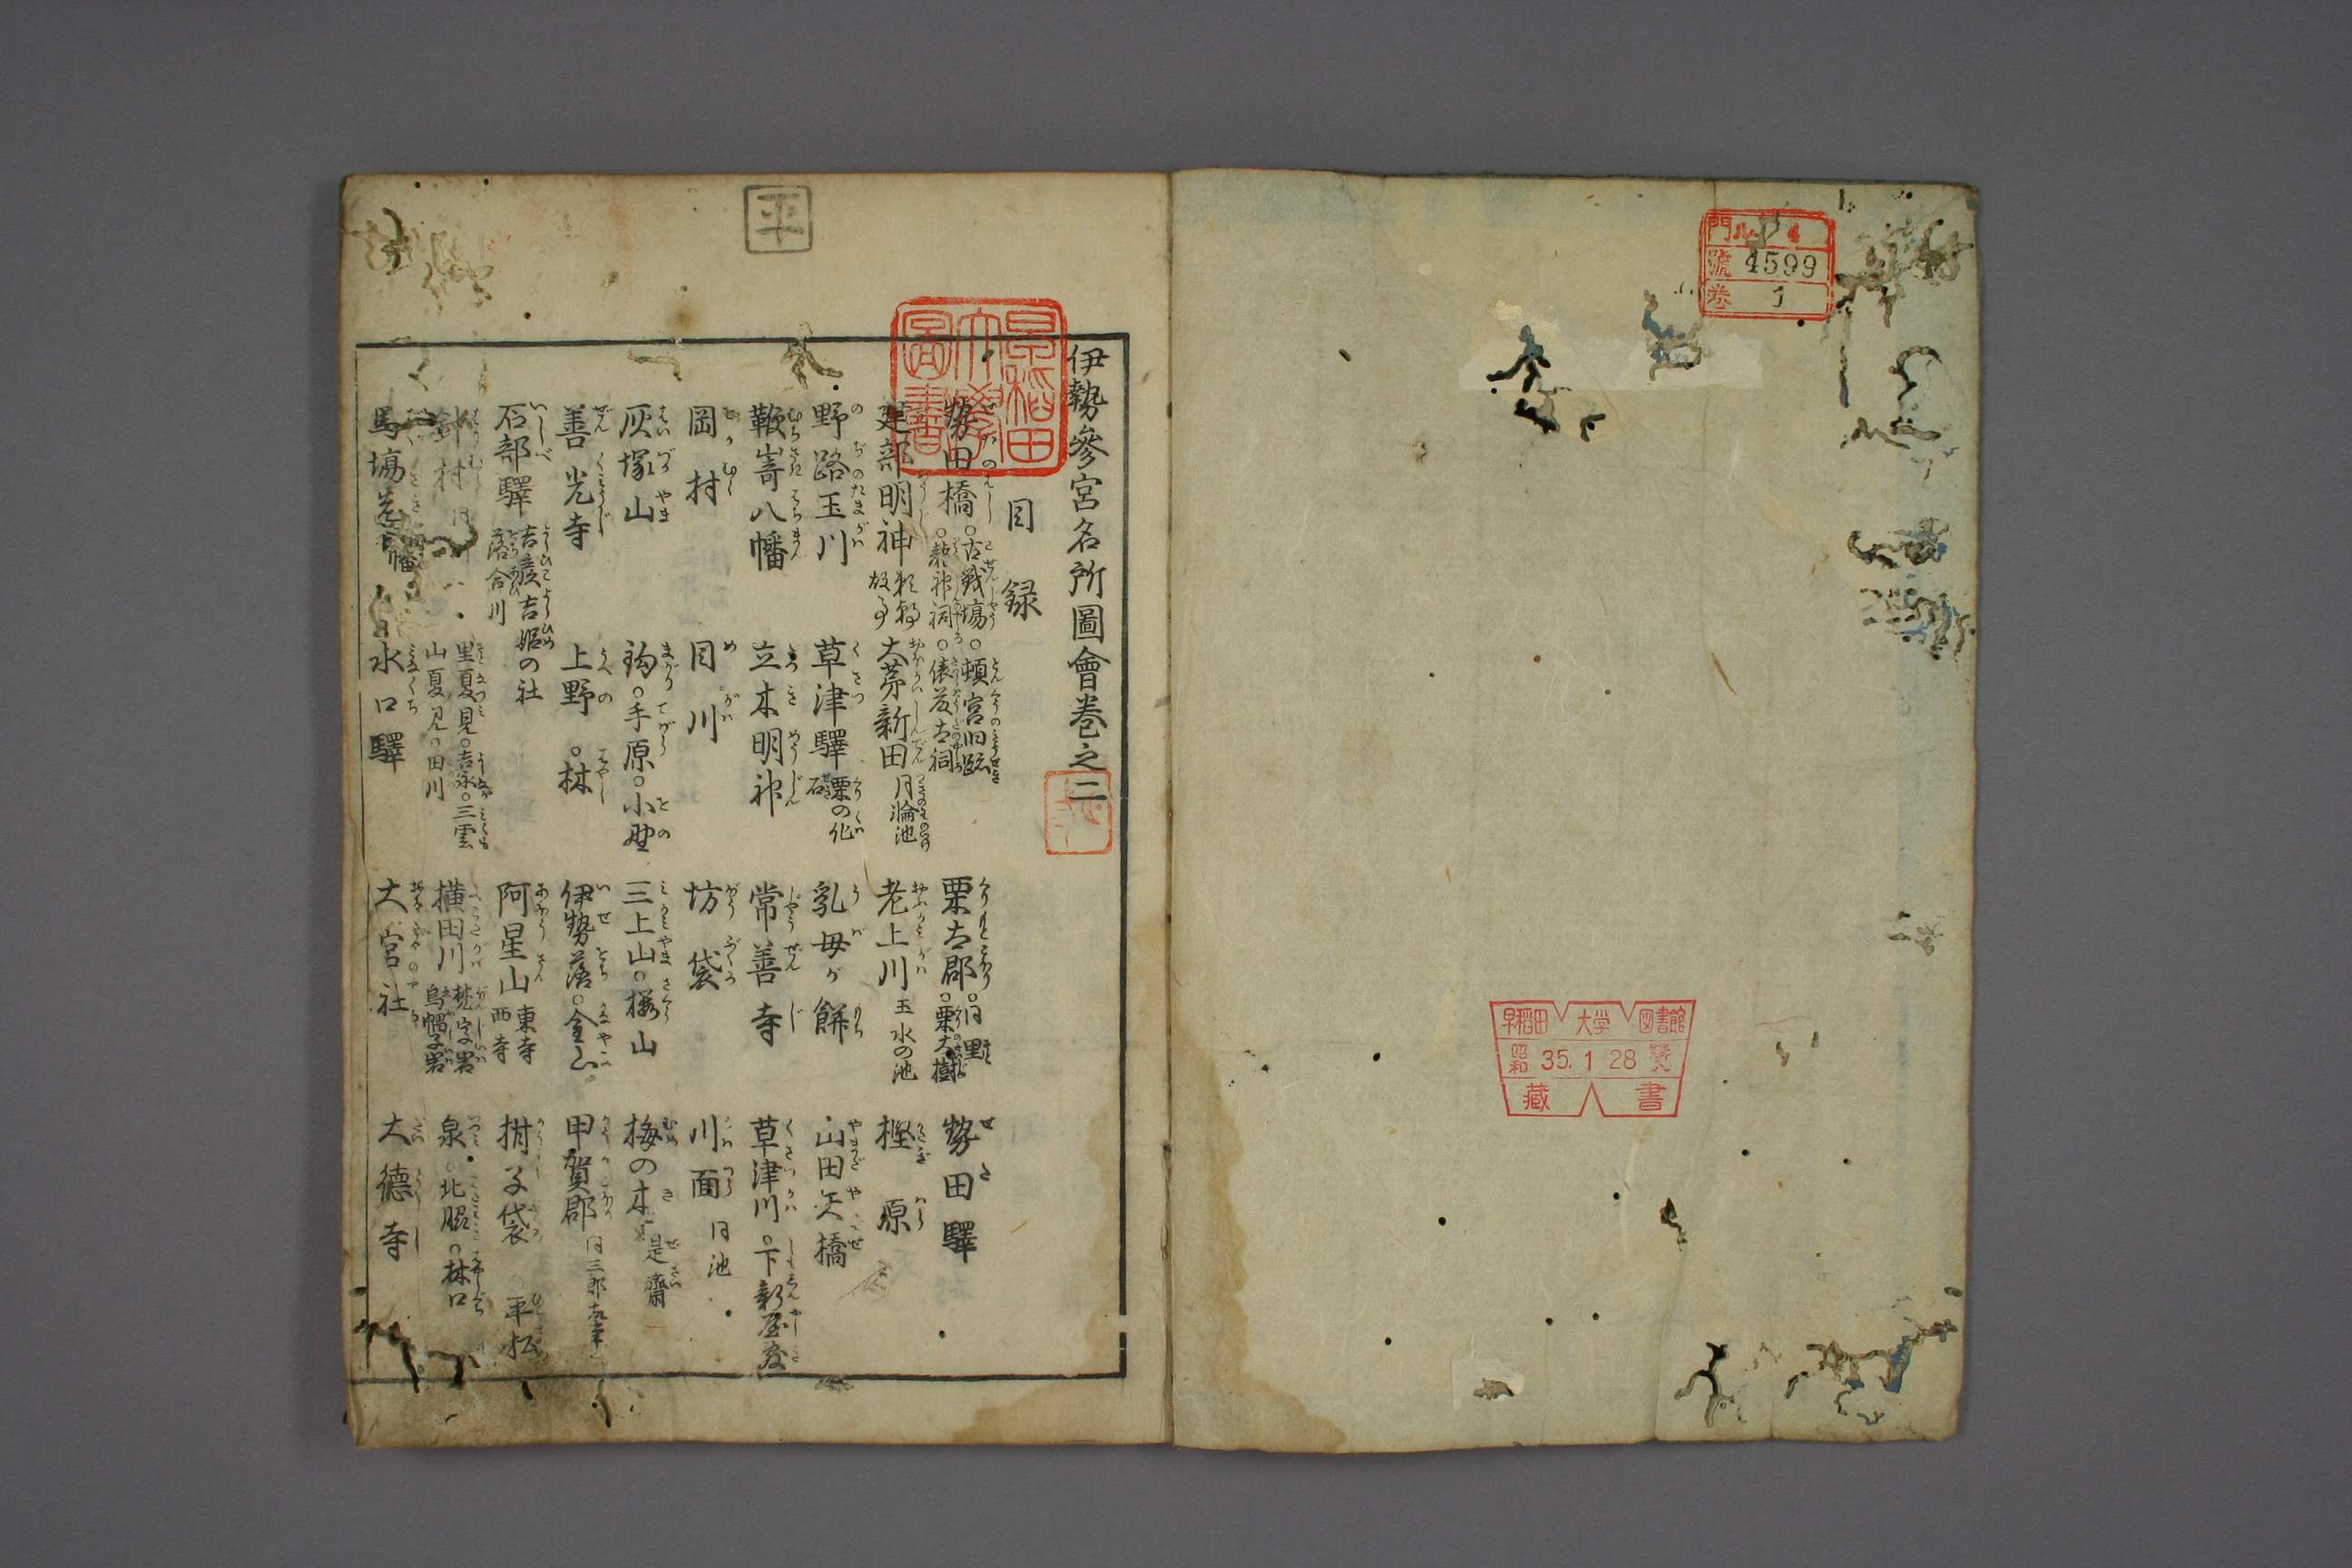 門 ル 4
號 4599
卷 1
早稲田 大学 図書館
昭和 35. 1 28
藏 書
平
早稲田大學圖書
伊勢參宮名所圖會巻之二
目録
勢田橋 ○古戦場○頓宮旧跡 ○龍神祠○俵藤太祠
栗太郡 ○同里 ○栗大樹
勢田驛
建部明神
大萱新田 月輪池
老上川 玉水の池
野路玉川
草津驛
乳母が餅
山田矢橋
鞭嵜八幡
立木明神
常善寺
草津川○下新屋敷
岡村
目川
坊袋
川面 同池
灰塚山
鈎○手原○小野
三上山○桜山
梅の木 是齋
善光寺
上野○林
伊勢落○金山
甲賀郡
石部驛 吉彦吉姫の社 落合川
阿星山 東寺 西寺
柑子袋 平松
針村
里夏見○吉永○三雲 山夏見○田川
横田川 烏帽子岩
泉○北脇○林口
水口驛
大宮社
大徳寺